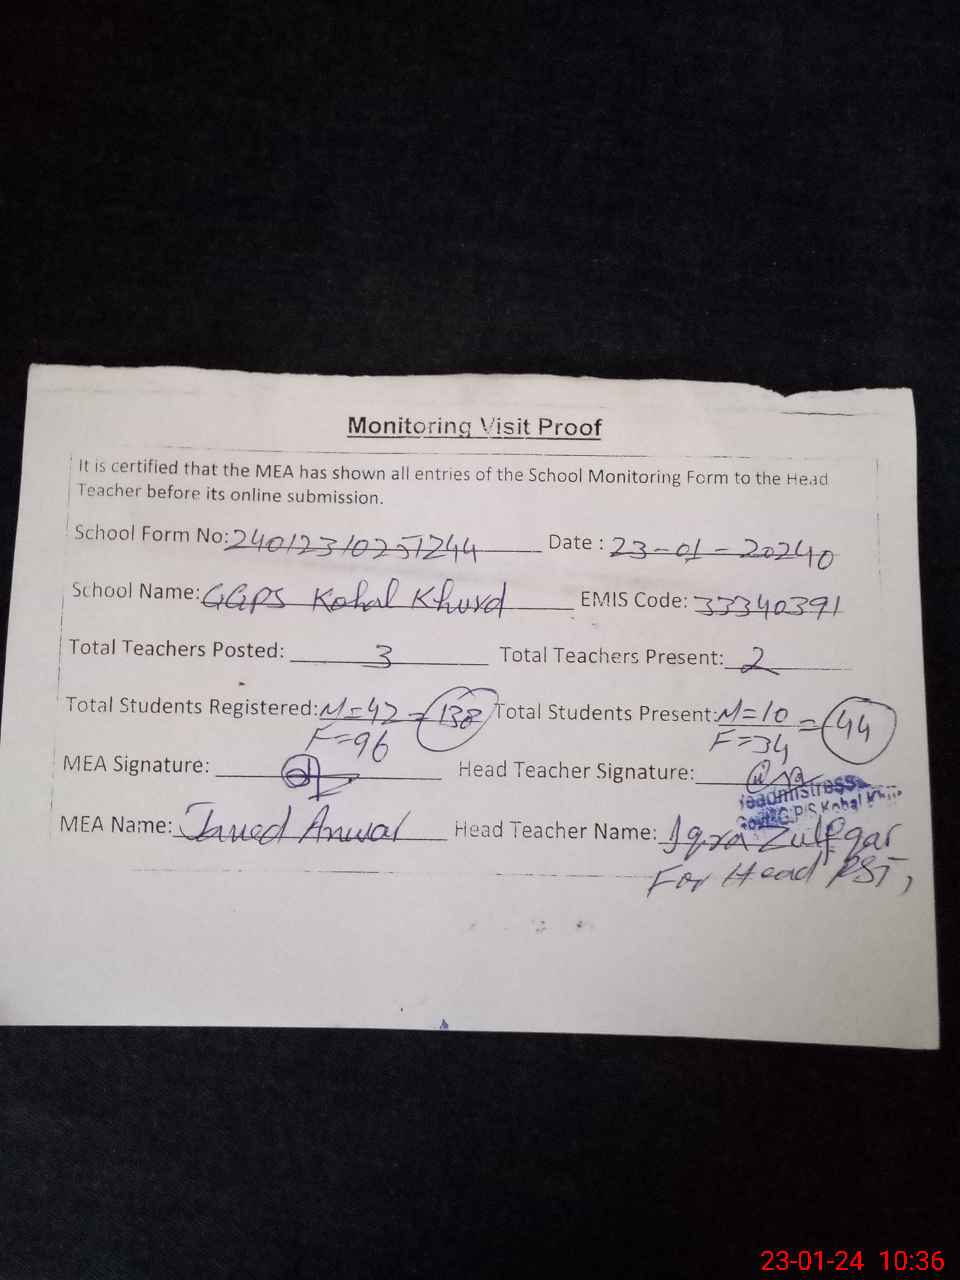 Monitoring Visit Proof
It is certified that the MEA has shown all entries of the School Monitoring Form to the Head
Teacher before its online submission.
School Form No: 240123102251244 Date : 23-01-20240
School Name: GGPS Kohal Khurd EMIS Code: 33340391
Total Teachers Posted: 3 Total Teachers Present: 2
Total Students Registered: M=42 = 138 Total Students Present: M=10 = 44
F=96 F=34
MEA Signature: Head Teacher Signature:
Headmistress
Govt. G.P/S Kohal
MEA Name: Javed Anwar Head Teacher Name: Iqra Zulfqar
For Head PST,
23-01-24 10:36